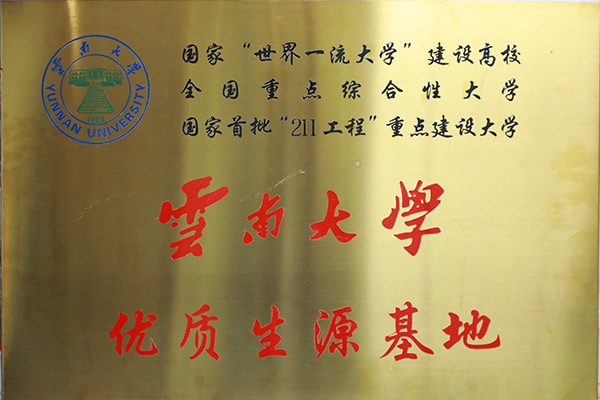 雲南大學
YUNNAN UNIVERSITY
1923
国家“世界一流大学”建设高校
全国重点综合性大学
国家首批“211工程”重点建设大学
雲南大學
优质生源基地